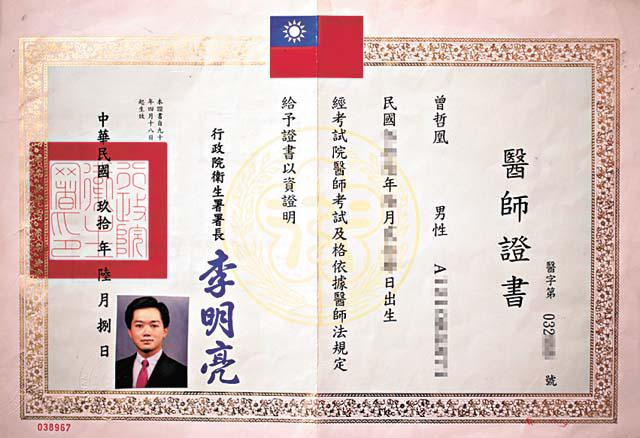 醫字第 032 號
醫師證書
曾哲凰 男性 A
民國 年 月 日出生
經考試院醫師考試及格依據醫師法規定
給予證書以資證明
行政院衛生署署長 李明亮
本證書自九十
年四月十八日
起生效
行政院
衛生
署印
中華民國 玖拾年 陸月 捌日
038967